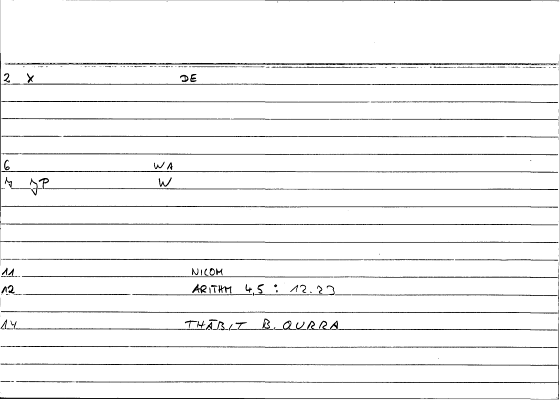 2 X DE
6 WA
7 W
11 NICOM
12 ARITHM 4,5 : 12.23
14 THĀBIT B. QURRA